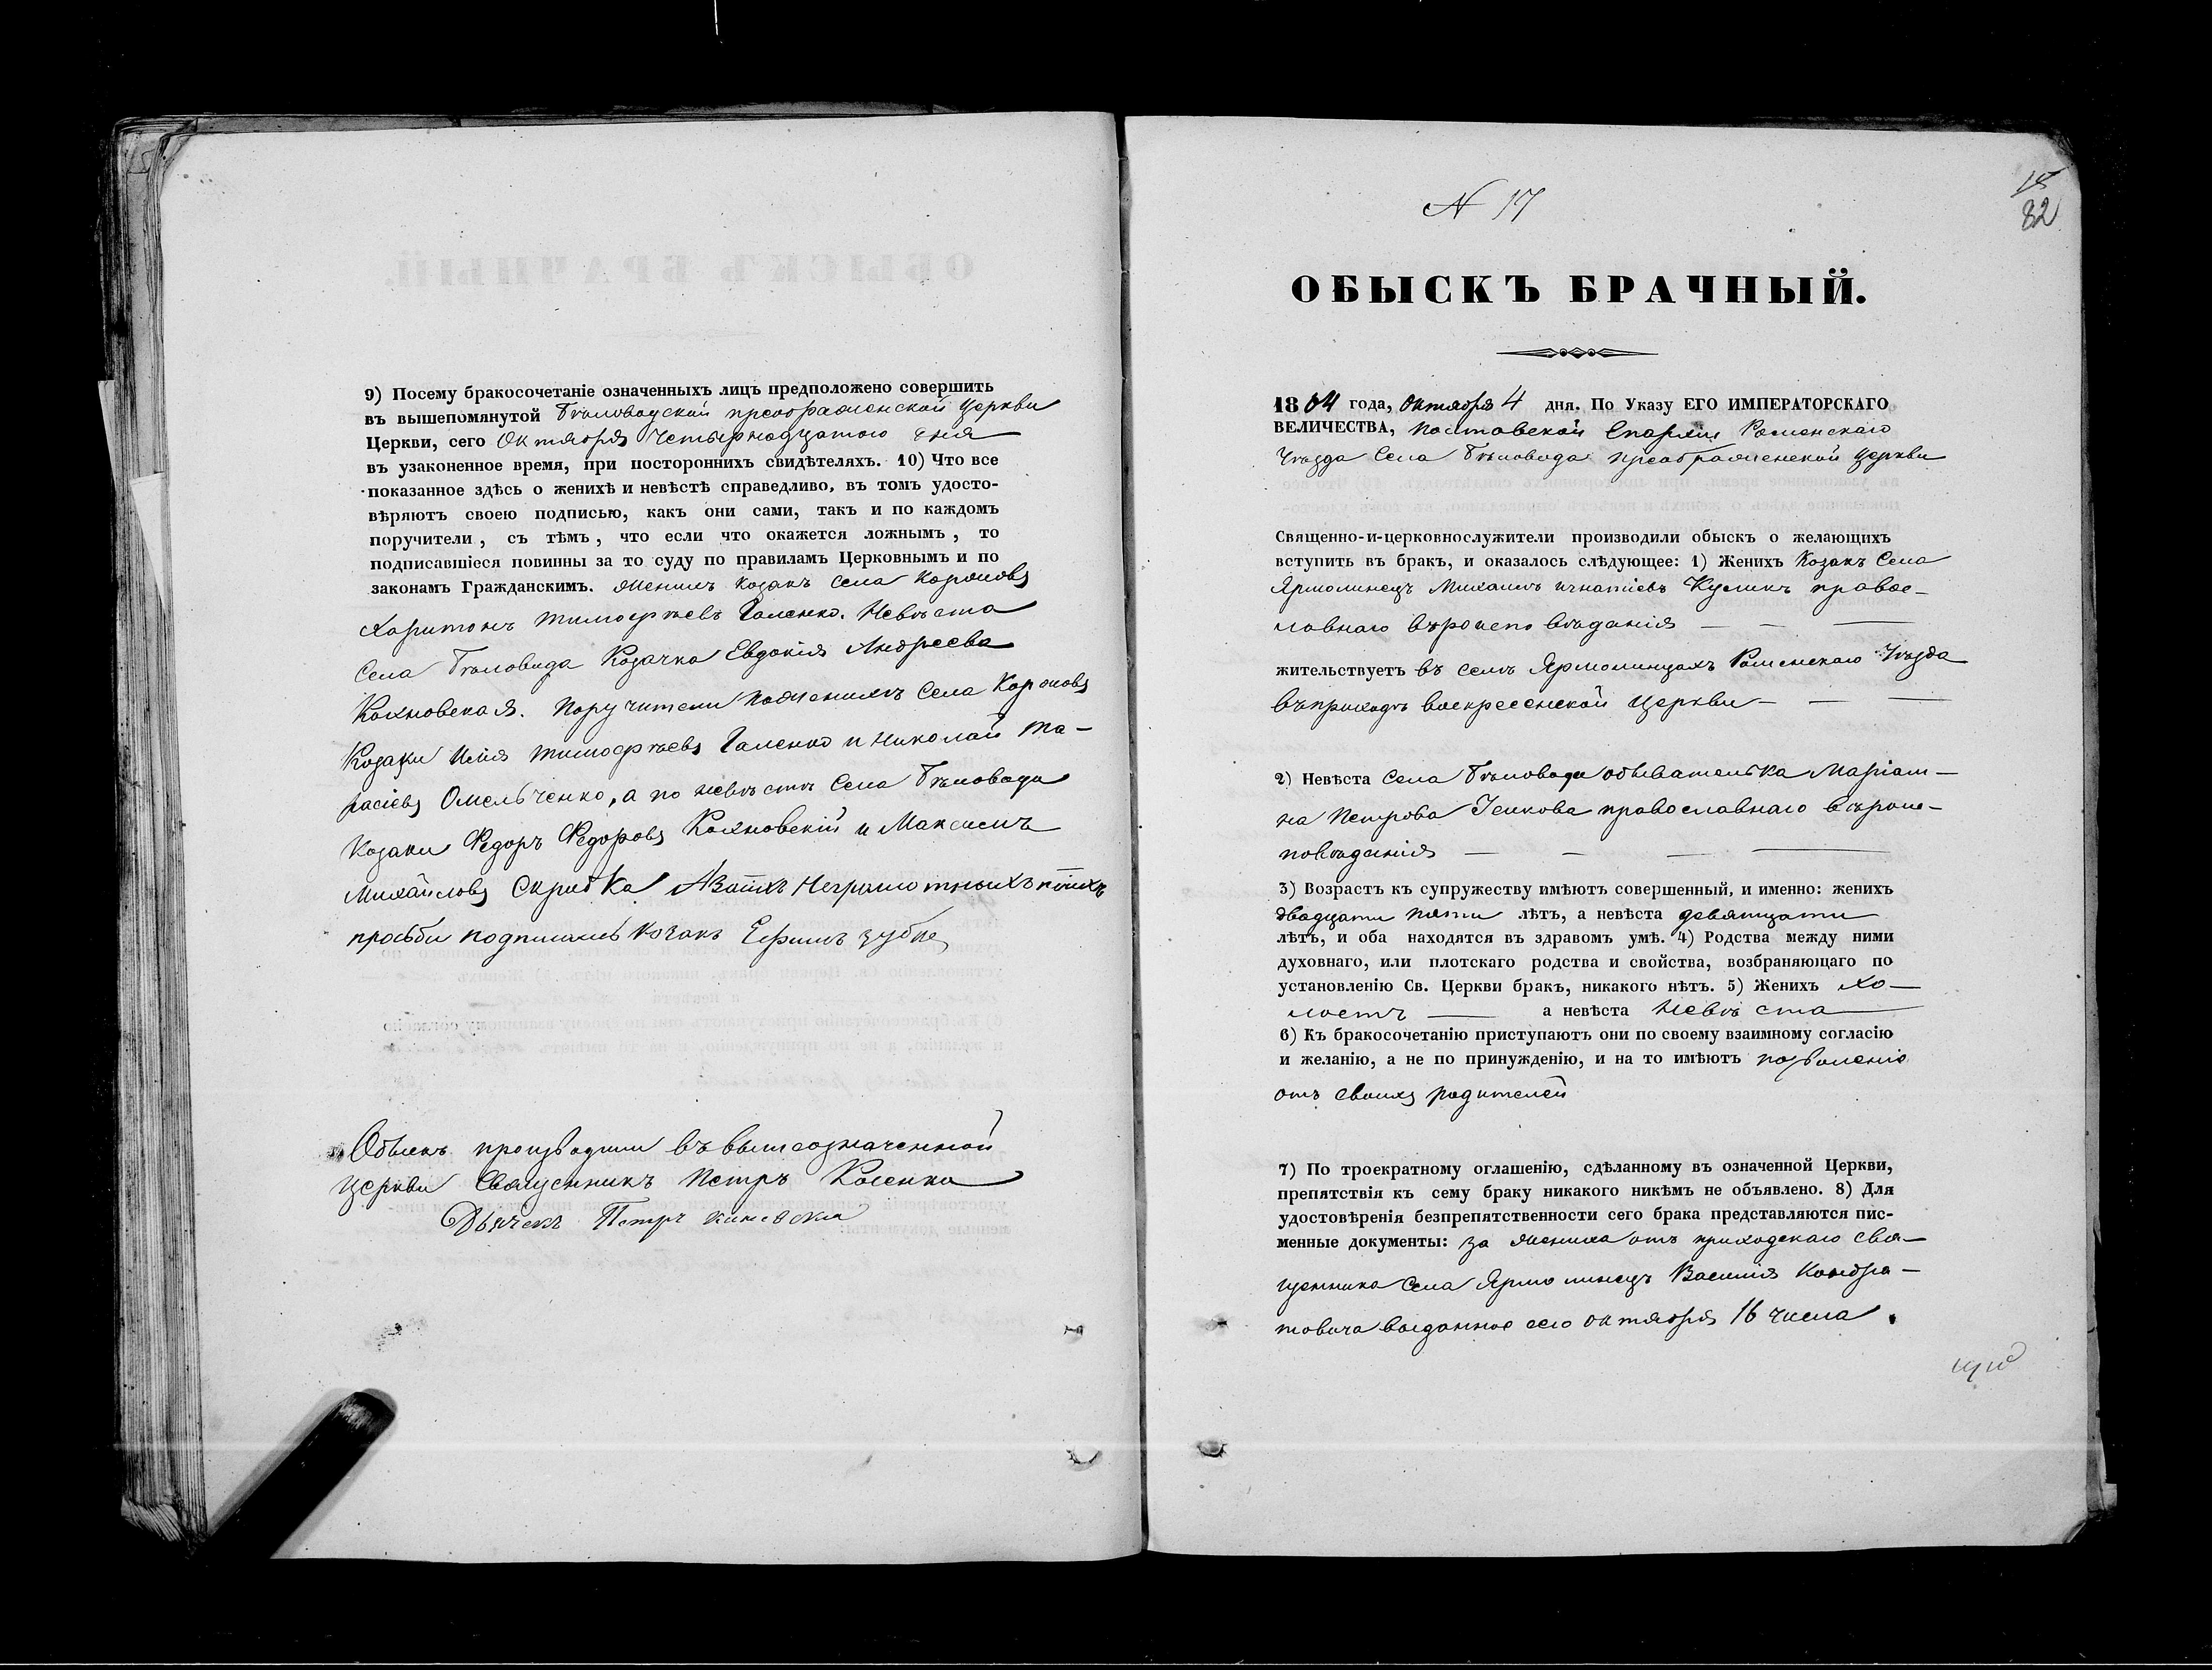 9) Посему бракосочетаніе означенныхъ лицъ предположено совершить
въ вышепомянутой Бѣловодской преображенской церкви
Церкви, сего Октября четырнадцатаго дня
въ узаконенное время, при постороннихъ свидѣтеляхъ. 10) Что все
показанное здѣсь о женихѣ и невѣстѣ справедливо, въ томъ удосто-
вѣряютъ своею подписью, какъ они сами, такъ и по каждомъ
поручители, съ тѣмъ, что если что окажется ложнымъ, то
подписавшіеся повинны за то суду по правиламъ Церковнымъ и по
законамъ Гражданскимъ. Женихъ козакъ села
Харитонъ Тимофѣевъ Галенко. Невѣста
Села Бѣловода Козачка Евдокія Андреева
Кохновская. Поручители по женихѣ Села
Козаки Илія Тимофѣевъ Галенко и Николай Та-
расіевъ Омельченко, а по невѣстѣ Села Бѣловода
Козаки Федоръ Федоровъ Кохновскій и Максимъ
Михайловъ Скрибка А за тѣхъ неграмотныхъ
просьби подписался козакъ Ефимъ Зубко
Обыскъ производили въ вышеозначенной
церкви Священникъ Петръ Косенко
Дьячекъ Петръ
N 17
15
82
ОБЫСКЪ БРАЧНЫЙ.
1864 года, Октября 4 дня. По Указу ЕГО ИМПЕРАТОРСКАГО
ВЕЛИЧЕСТВА, Полтавской Епархіи Роменскаго
Уѣзда Села Бѣловода преображенской церкви
Священно-и-церковнослужители производили обыскъ о желающихъ
вступить въ бракъ, и оказалось слѣдующее: 1) Женихъ Козакъ Села
Ярмолинецъ Михаилъ Игнатіевъ Куликъ правос-
лавнаго вѣроисповѣданія
жительствуетъ въ селѣ Ярмолинцахъ Роменскаго Уѣзда
въ приходѣ воскресенской церкви
2) Невѣста Села Бѣловода обывателька Маріам-
на Петрова православнаго вѣроис-
повѣданія
3) Возрастъ къ супружеству имѣютъ совершенный, и именно: женихъ
двадцати пяти лѣтъ, а невѣста девятнцати
лѣтъ, и оба находятся въ здравомъ умѣ. 4) Родства между ними
духовнаго, или плотскаго родства и свойства, возбраняющаго по
установленію Св. Церкви бракъ, никакого нѣтъ. 5) Женихъ хо-
лостъ а невѣста невѣста
6) Къ бракосочетанію приступаютъ они по своему взаимному согласію
и желанію, а не по принужденію, и на то имѣютъ позволеніе
отъ своихъ родителей
7) По троекратному оглашенію, сдѣланному въ означенной Церкви,
препятствія къ сему браку никакого никѣмъ не объявлено. 8) Для
удостовѣренія безпрепятственности сего брака представляются пис-
менные документы: за жениха отъ приходскаго свя-
щенника Села Ярмолинецъ Василія Кондра-
товича выданное сего октября 16 числа.